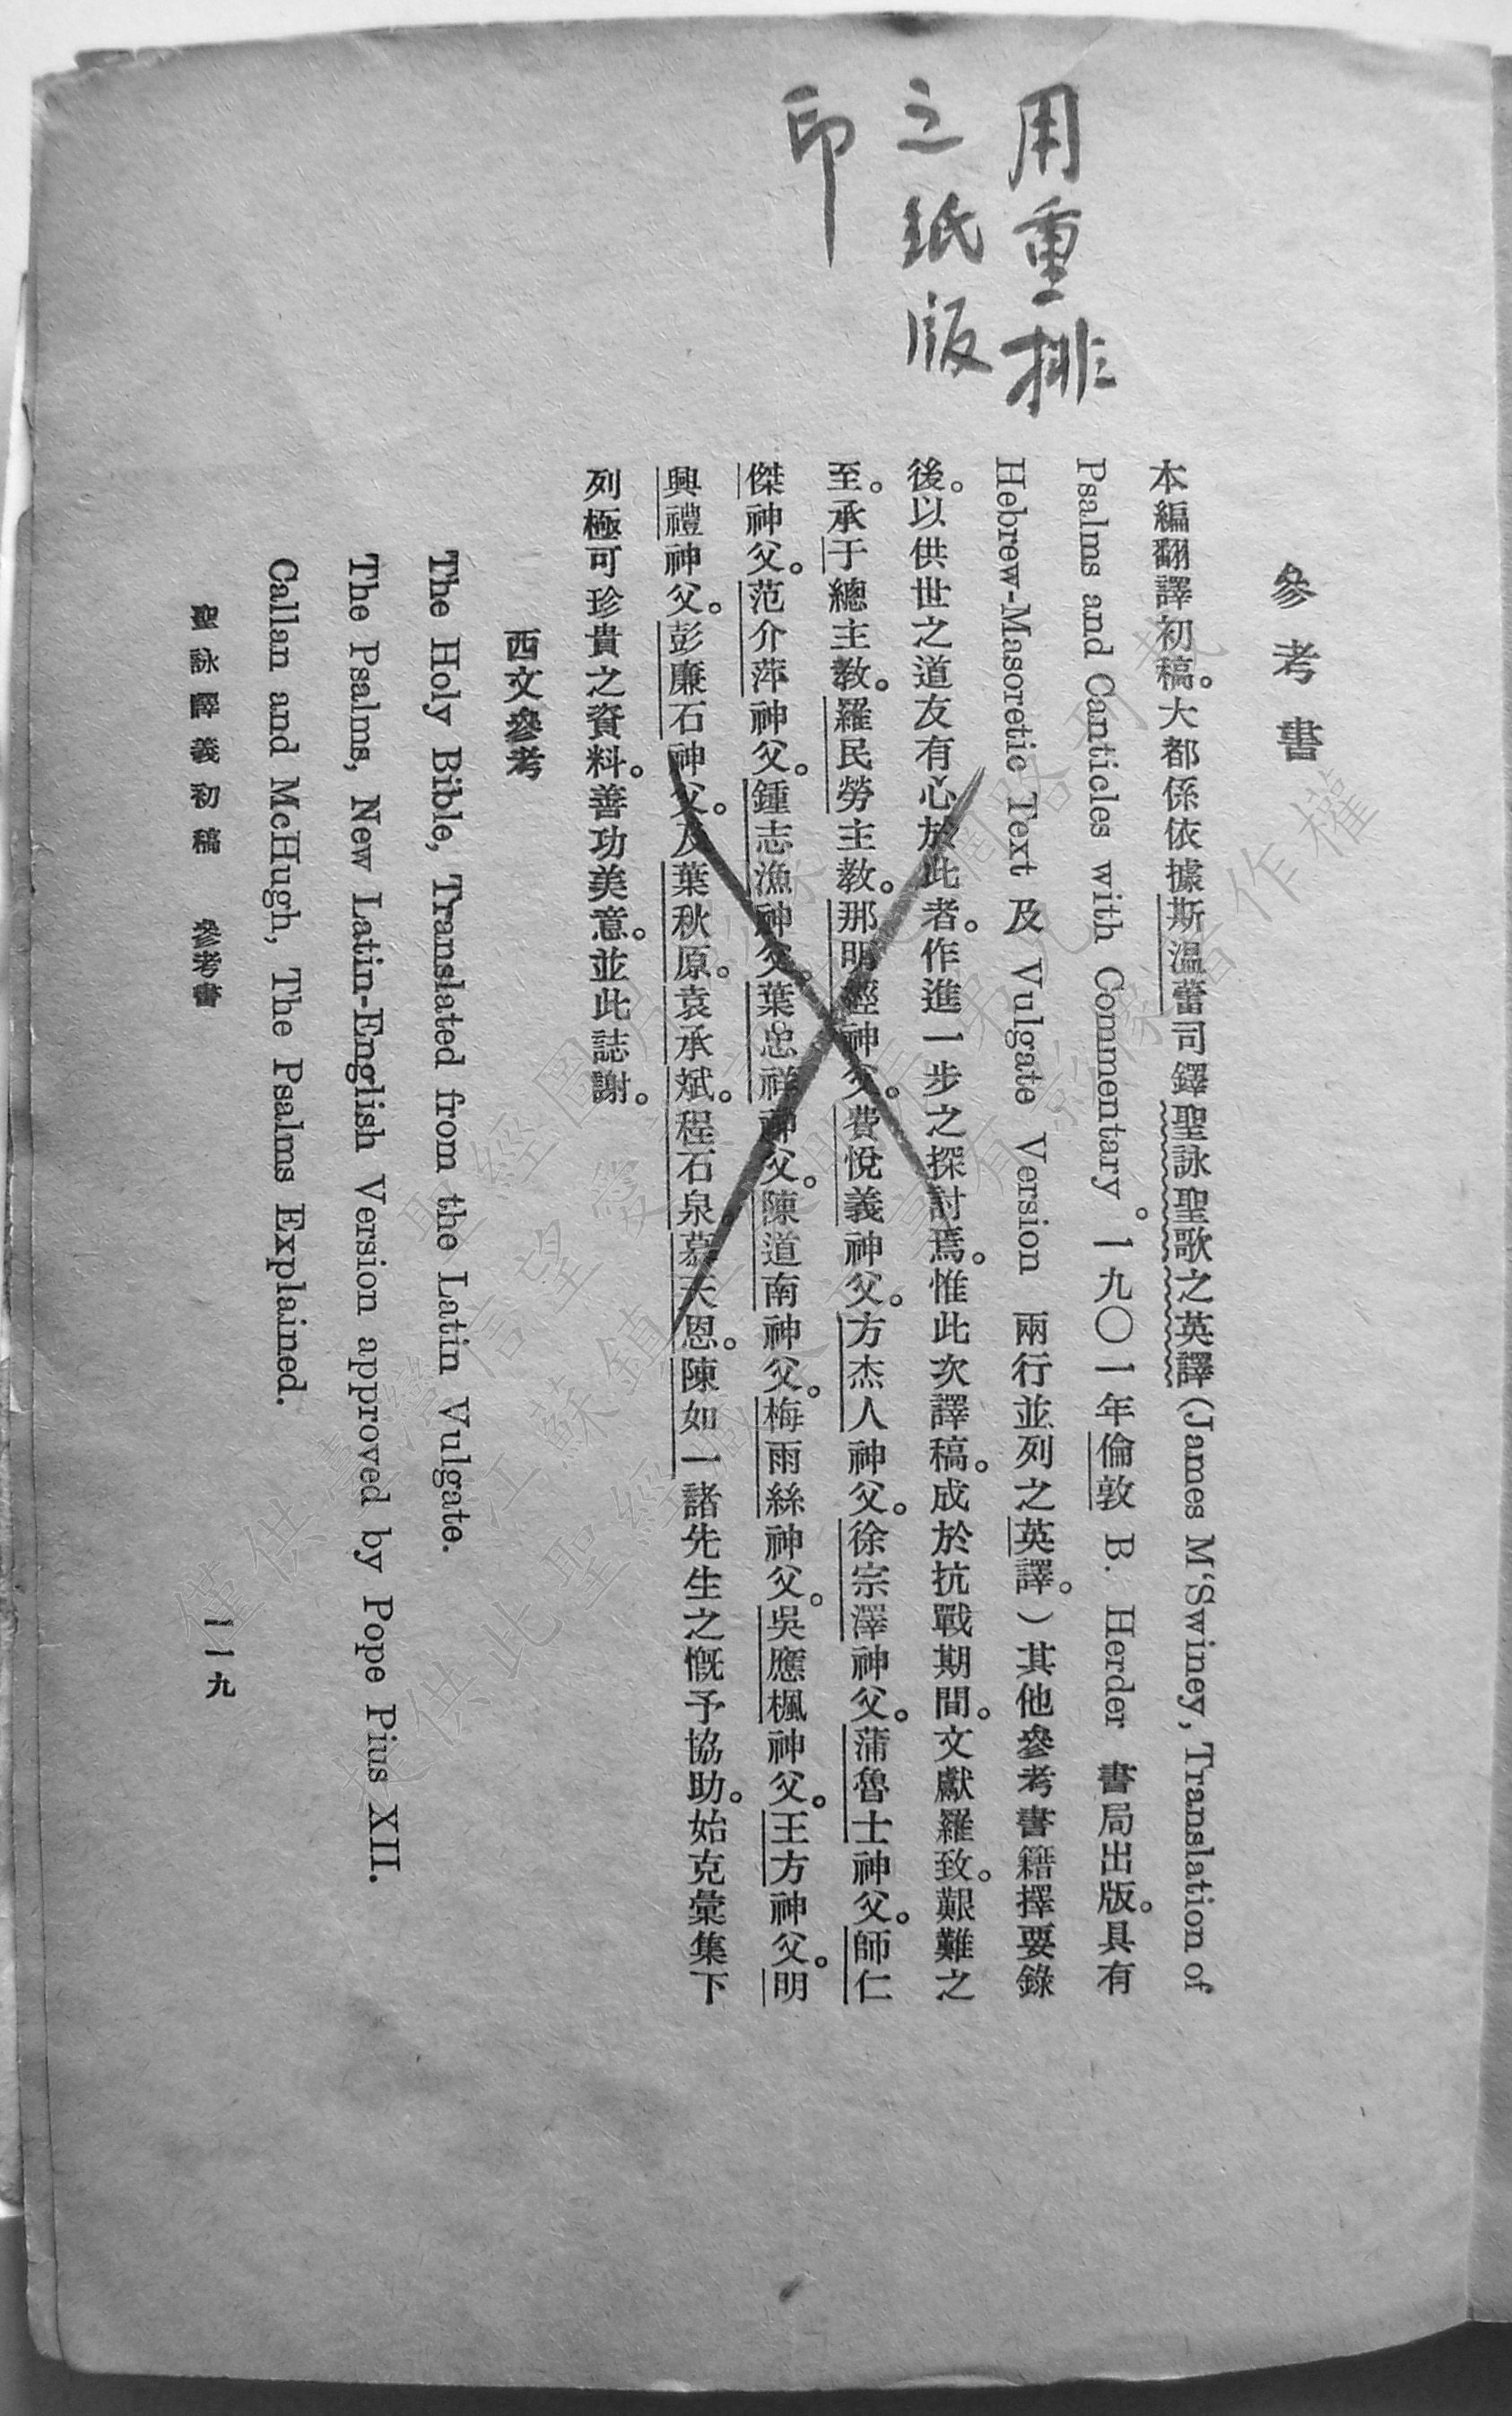 用重排
之紙版
印
參考書
本編翻譯初稿。大都係依據斯溫蕾司鐸聖詠聖歌之英譯(James M‘Swiney, Translation of
Psalms and Canticles with Commentary。一九〇一年倫敦 B. Herder 書局出版。具有
Hebrew-Masoretic Text 及 Vulgate Version 兩行並列之英譯。)其他參考書籍擇要錄
後。以供世之道友有心於此者。作進一步之探討焉。惟此次譯稿。成於抗戰期間。文獻羅致。艱難之
至。承于總主教。羅民勞主教。那明經神父。費悅義神父。方杰人神父。徐宗澤神父。蒲魯士神父。師仁
傑神父。范介萍神父。鍾志漁神父。葉忠祥神父。陳道南神父。梅雨絲神父。吳應楓神父。王方神父。明
興禮神父。彭廉石神父。及葉秋原。袁承斌。程石泉。慕天恩。陳如一諸先生之慨予協助。始克彙集下
列極可珍貴之資料。善功美意。並此誌謝。
西文參考
The Holy Bible, Translated from the Latin Vulgate.
The Psalms, New Latin-English Version approved by Pope Pius XII.
Callan and McHugh, The Psalms Explained.
聖詠譯義初稿 參考書 二一九